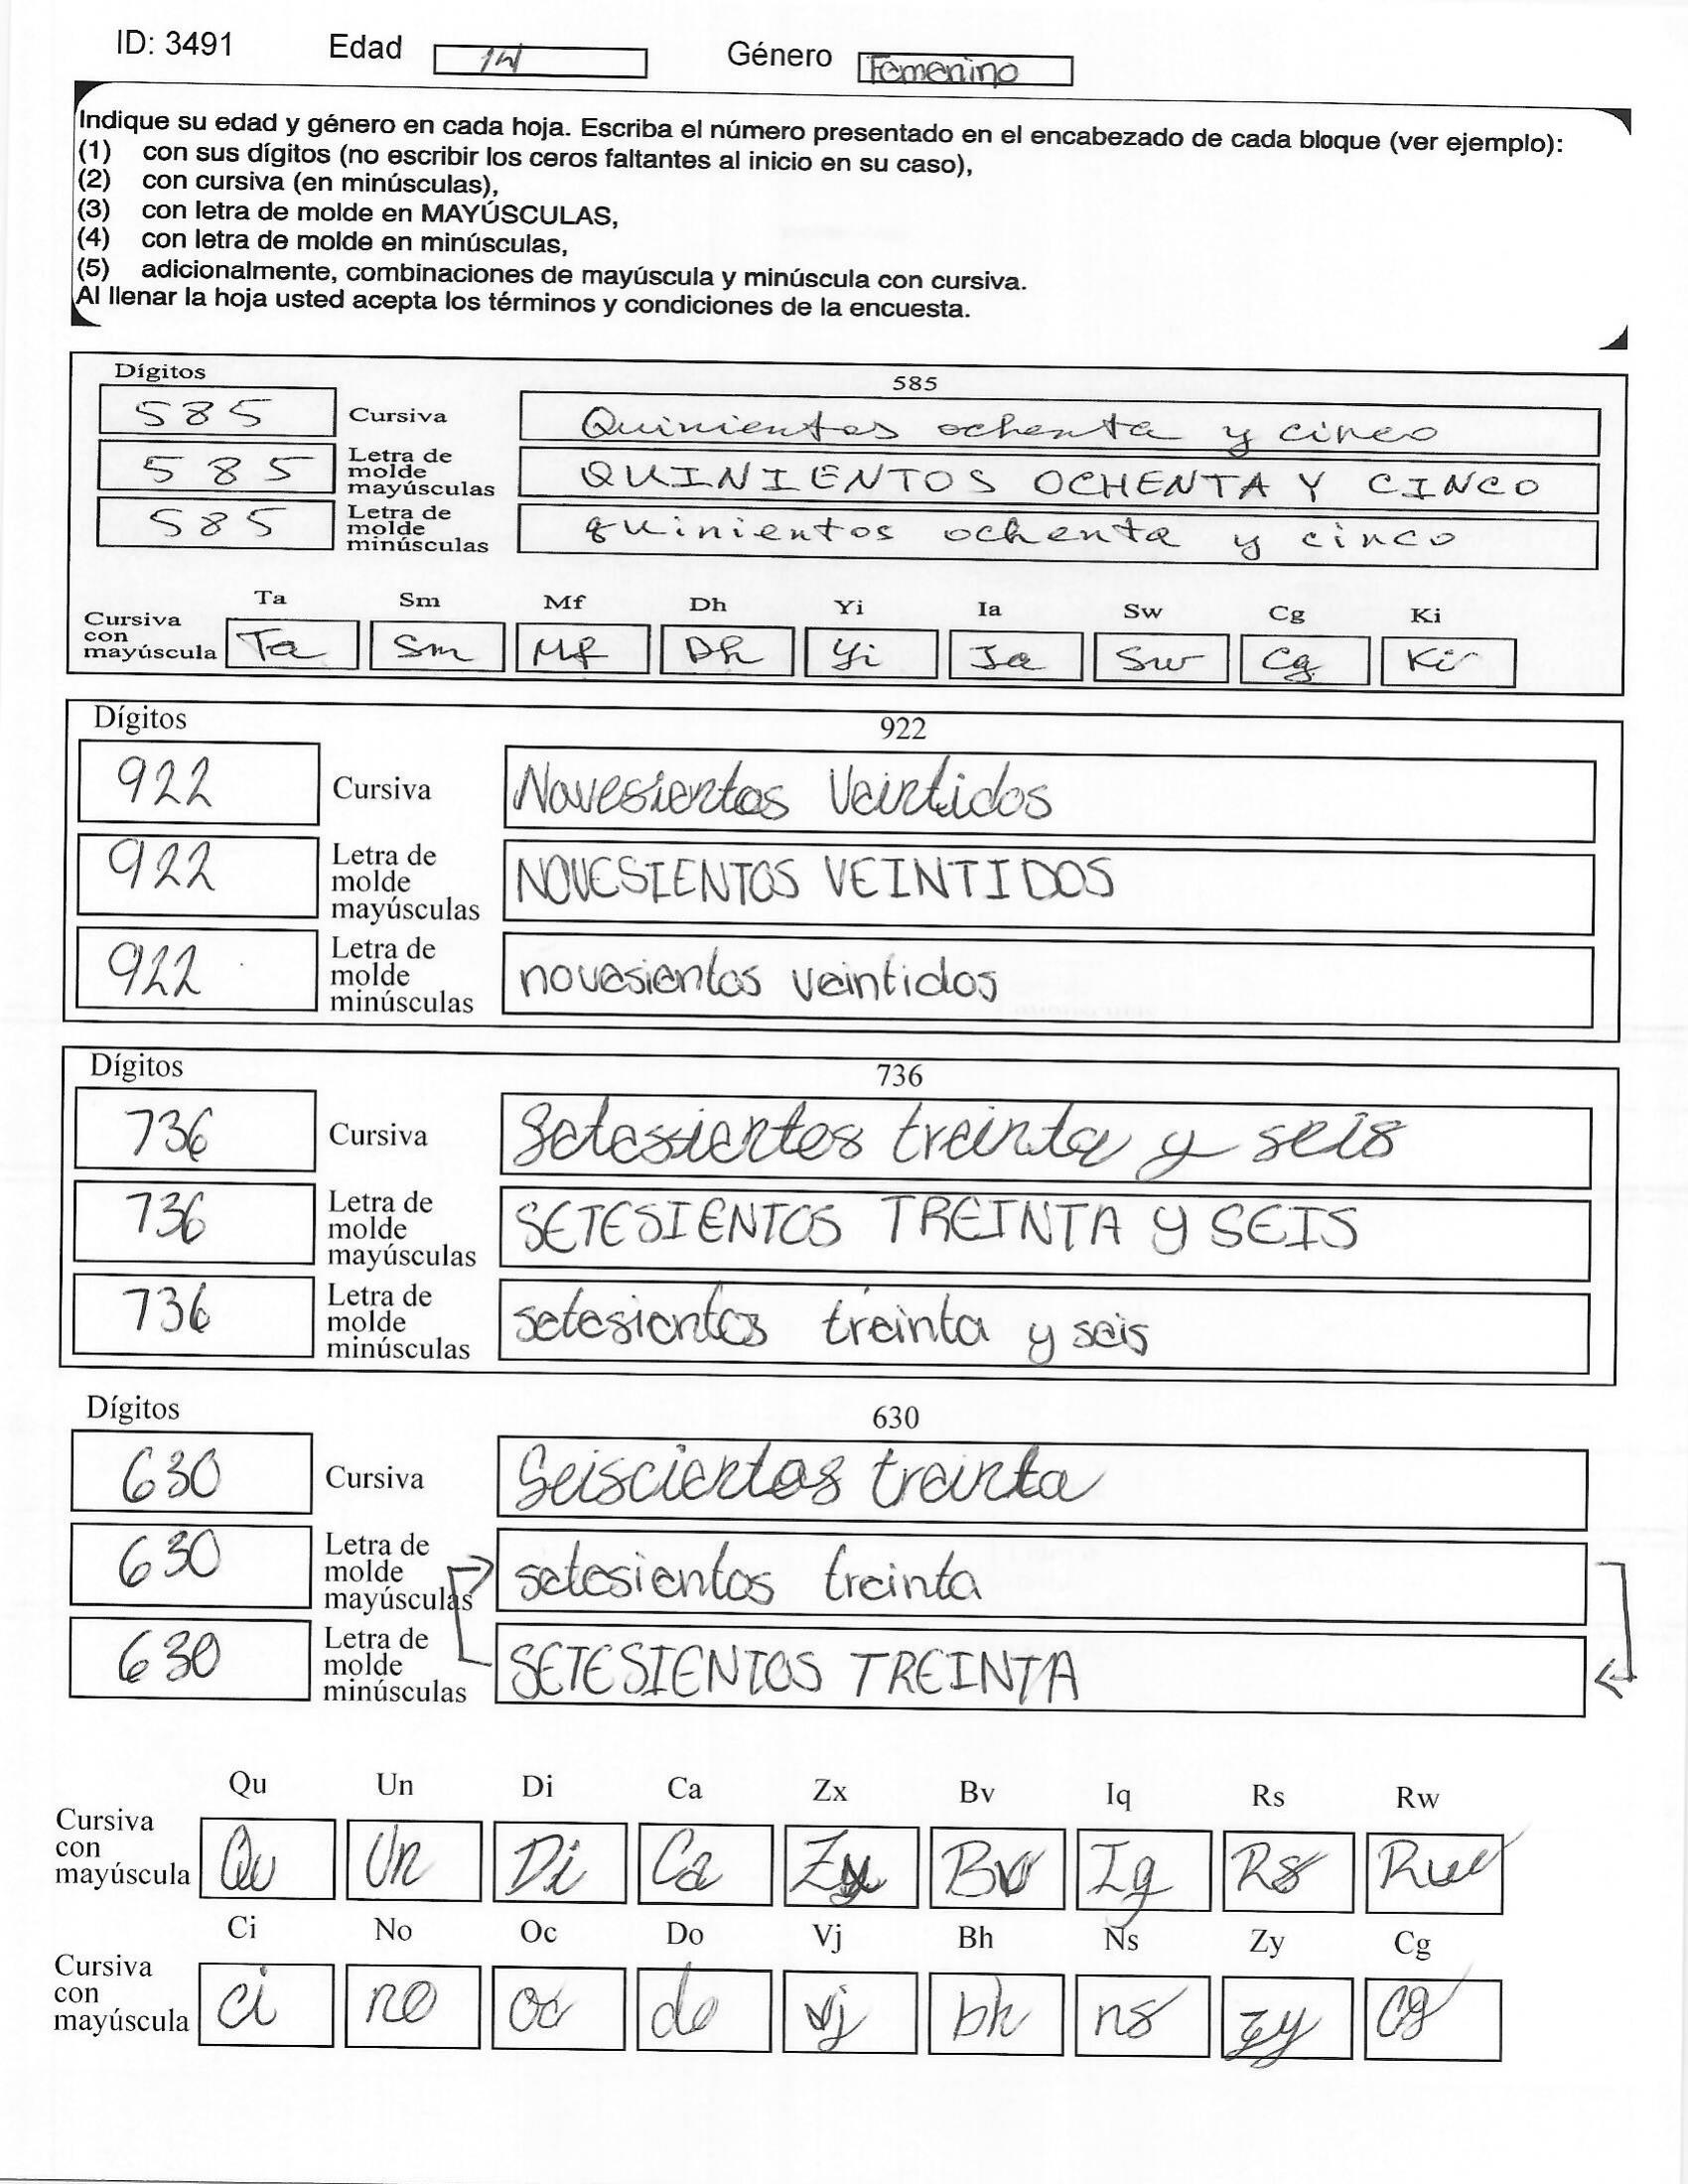 ID: 3491 Edad 14 Género Femenino
Indique su edad y género en cada hoja. Escriba el número presentado en el encabezado de cada bloque (ver ejemplo):
(1) con sus dígitos (no escribir los ceros faltantes al inicio en su caso),
(2) con cursiva (en minúsculas),
(3) con letra de molde en MAYÚSCULAS,
(4) con letra de molde en minúsculas,
(5) adicionalmente, combinaciones de mayúscula y minúscula con cursiva.
Al llenar la hoja usted acepta los términos y condiciones de la encuesta.
Dígitos 585
585 Cursiva Quinientos ochenta y cinco
585 Letra de molde mayúsculas QUINIENTOS OCHENTA Y CINCO
585 Letra de molde minúsculas quinientos ochenta y cinco
Ta Sm Mf Dh Yi Ia Sw Cg Ki
Cursiva con mayúscula Ta Sm Mf Dh Yi Ia Sw Cg Ki
Dígitos 922
922 Cursiva Novesientos Veintidos
922 Letra de molde mayúsculas NOVESIENTOS VEINTIDOS
922 Letra de molde minúsculas novesientos veintidos
Dígitos 736
736 Cursiva Setessientos treinta y seis
736 Letra de molde mayúsculas SETESIENTOS TREINTA Y SEIS
736 Letra de molde minúsculas setesientos treinta y seis
Dígitos 630
630 Cursiva Seiscientos treinta
630 Letra de molde mayúsculas setesientos treinta
630 Letra de molde minúsculas SETESIENTOS TREINTA
Qu Un Di Ca Zx Bv Iq Rs Rw
Cursiva con mayúscula Qu Un Di Ca Zx Bv Iq Rs Rw
Ci No Oc Do Vj Bh Ns Zy Cg
Cursiva con mayúscula ci no oc do vj bh ns zy cg